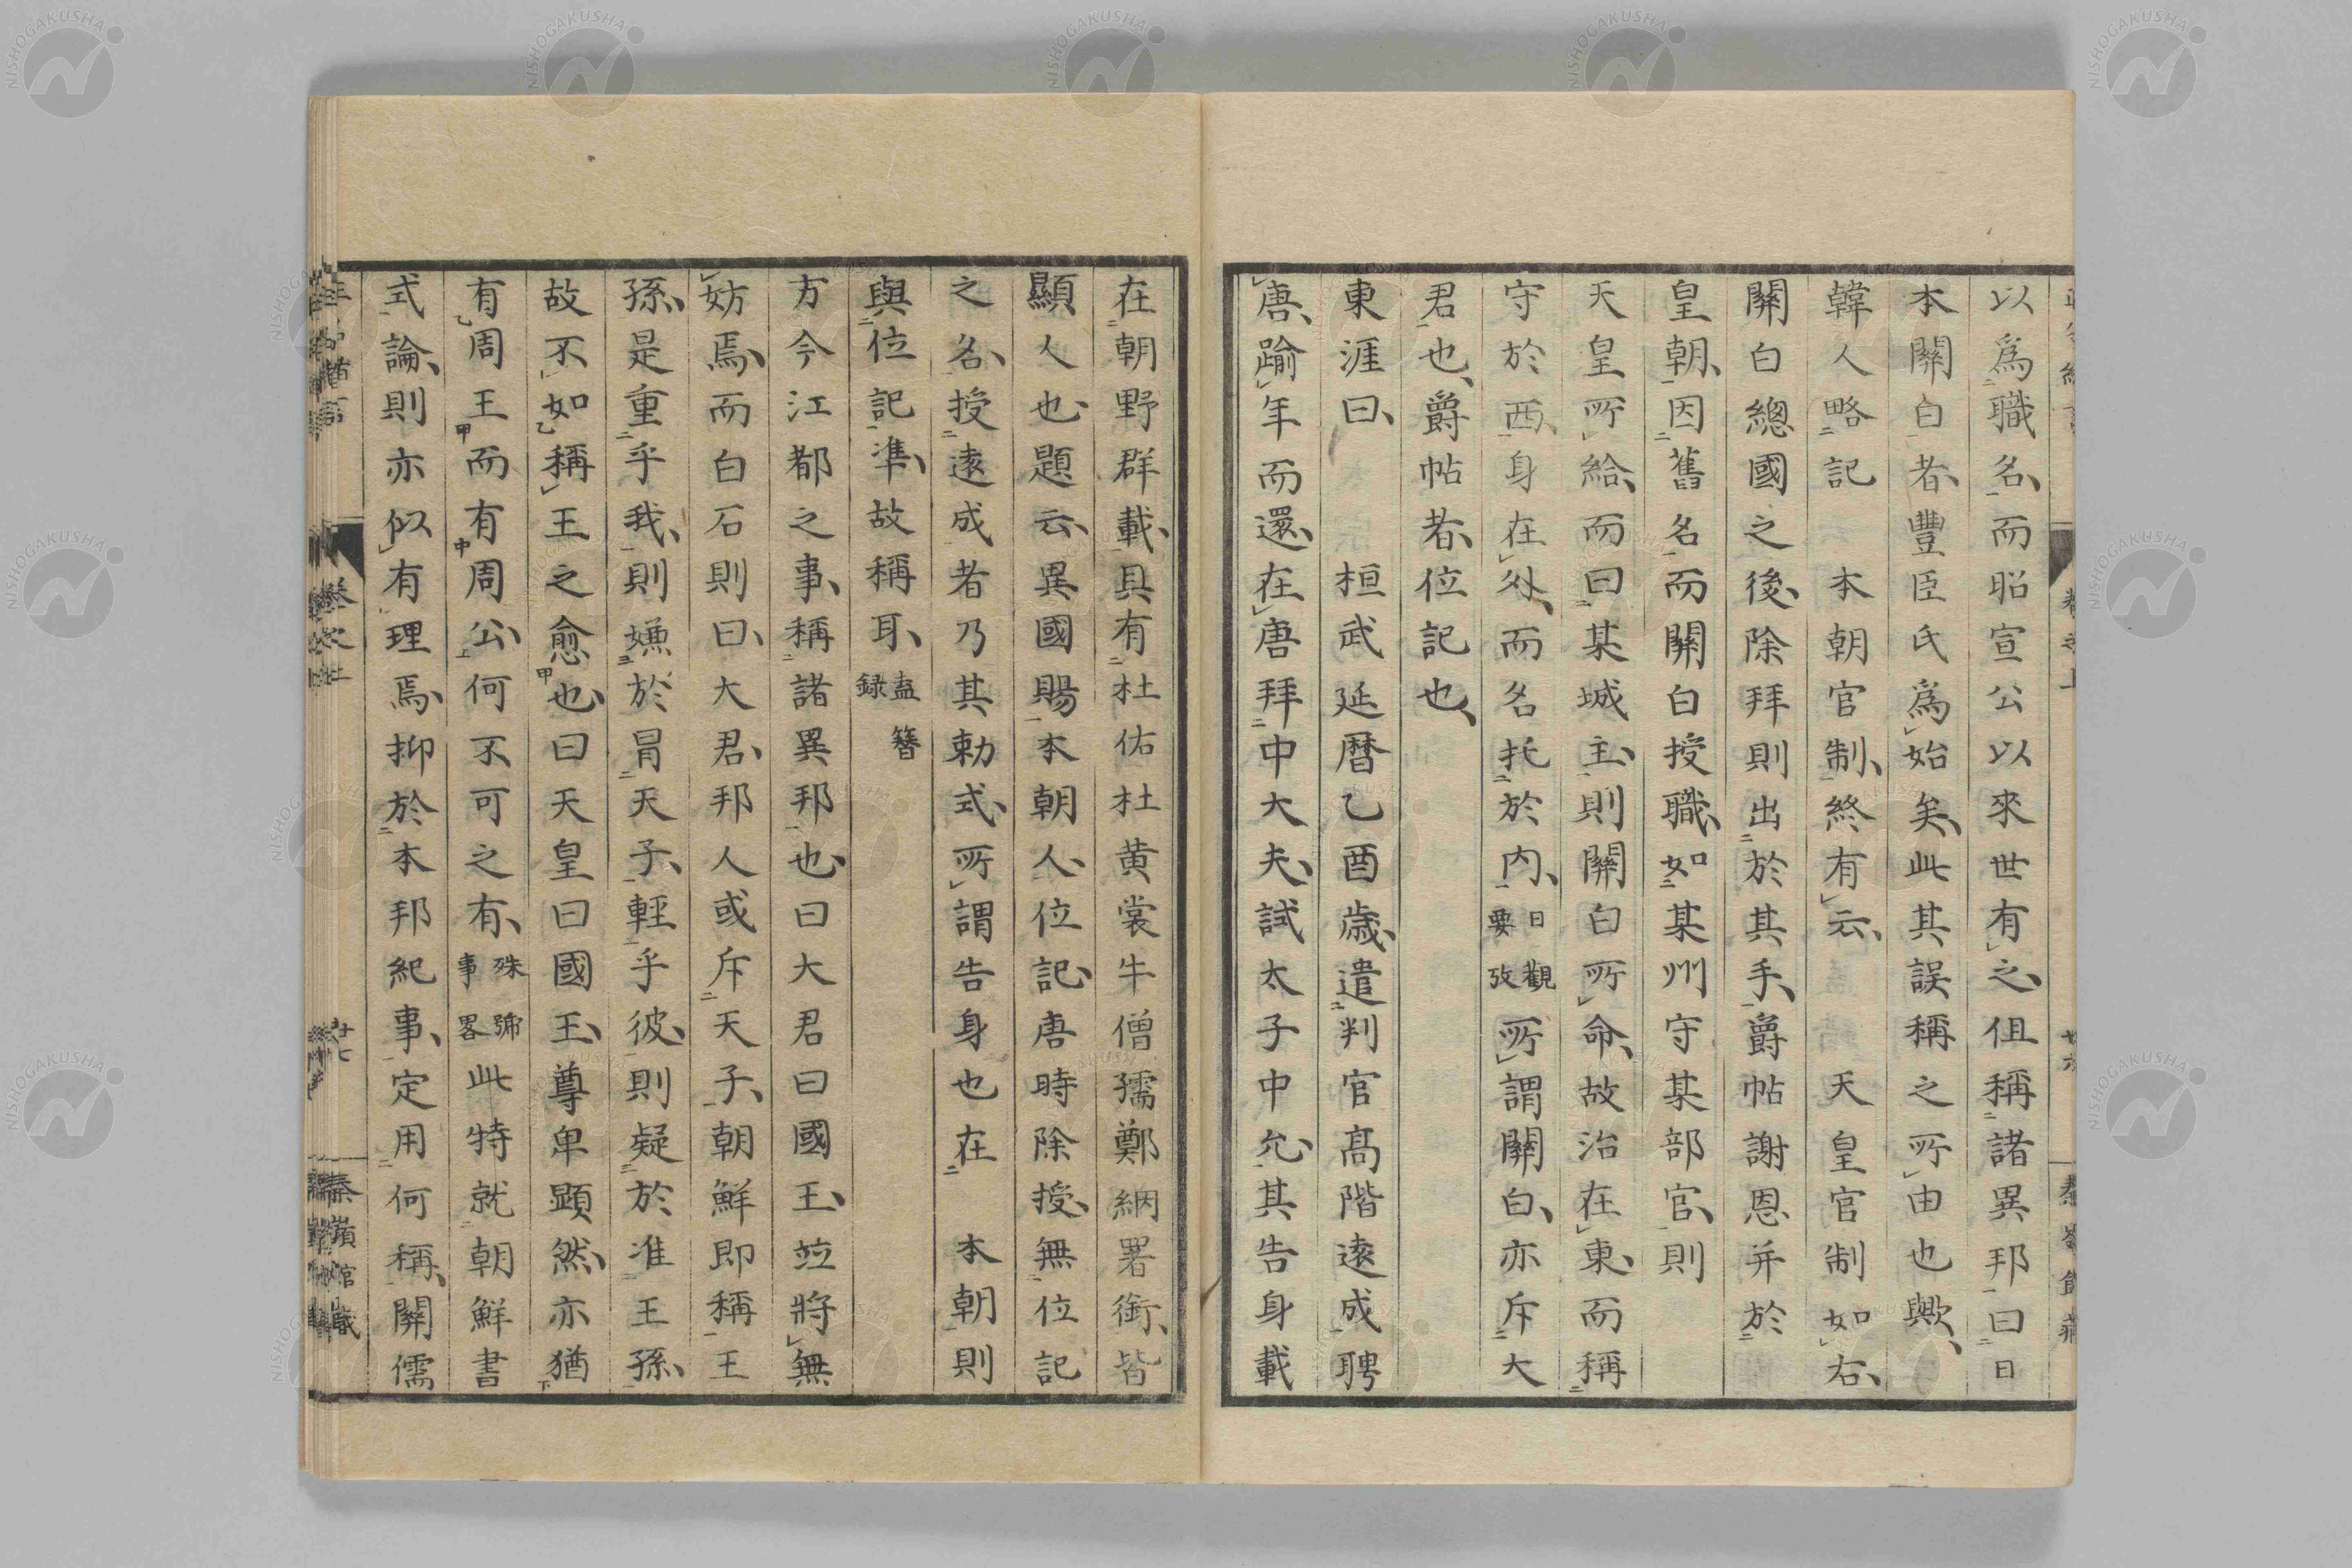 以爲職名、而昭宣公以來世有之、但稱諸異邦曰日
本關白者、豐臣氏爲始矣、此其誤稱之所由也歟、
韓人略記　本朝官制、終有云、　天皇官制如右、
關白總國之後、除拜則出於其手、爵帖謝恩并於
皇朝、因舊名而關白授職、如某州守某部官、則
天皇所給、而曰某城主、則關白所命、故治在東、而稱
守於西、身在外、而名托於内、日觀要攷所謂關白、亦斥大
君也、爵帖者、位記也、
東涯曰、　桓武延暦乙酉歳、遣判官髙階遠成聘
唐、踰年而還、在唐拜中大夫、試太子中允、其告身載
在朝野群載、具有杜佑杜黄裳牛僧孺鄭絪署銜、皆
顯人也、題云、異國賜本朝人、位記、唐時除授、無位記
之名、授遠成者乃其勅式、所謂告身也在　本朝則
與位記準、故稱耳、盍簪録
方今江都之事、稱諸異邦也、曰大君曰國王、竝將無
妨焉、而白石則曰、大君、邦人或斥天子、朝鮮即稱王
孫、是重乎我、則嫌於冐天子、輕乎彼、則疑於准王孫、
故不如稱王之愈也、曰天皇曰國王、尊卑顕然、亦猶
有周王而有周公、何不可之有、殊號事畧此特就朝鮮書
式論、則亦似有理焉、抑於本邦紀事、定用何稱、關儒
卷之上
廿七
秦嶺館藏